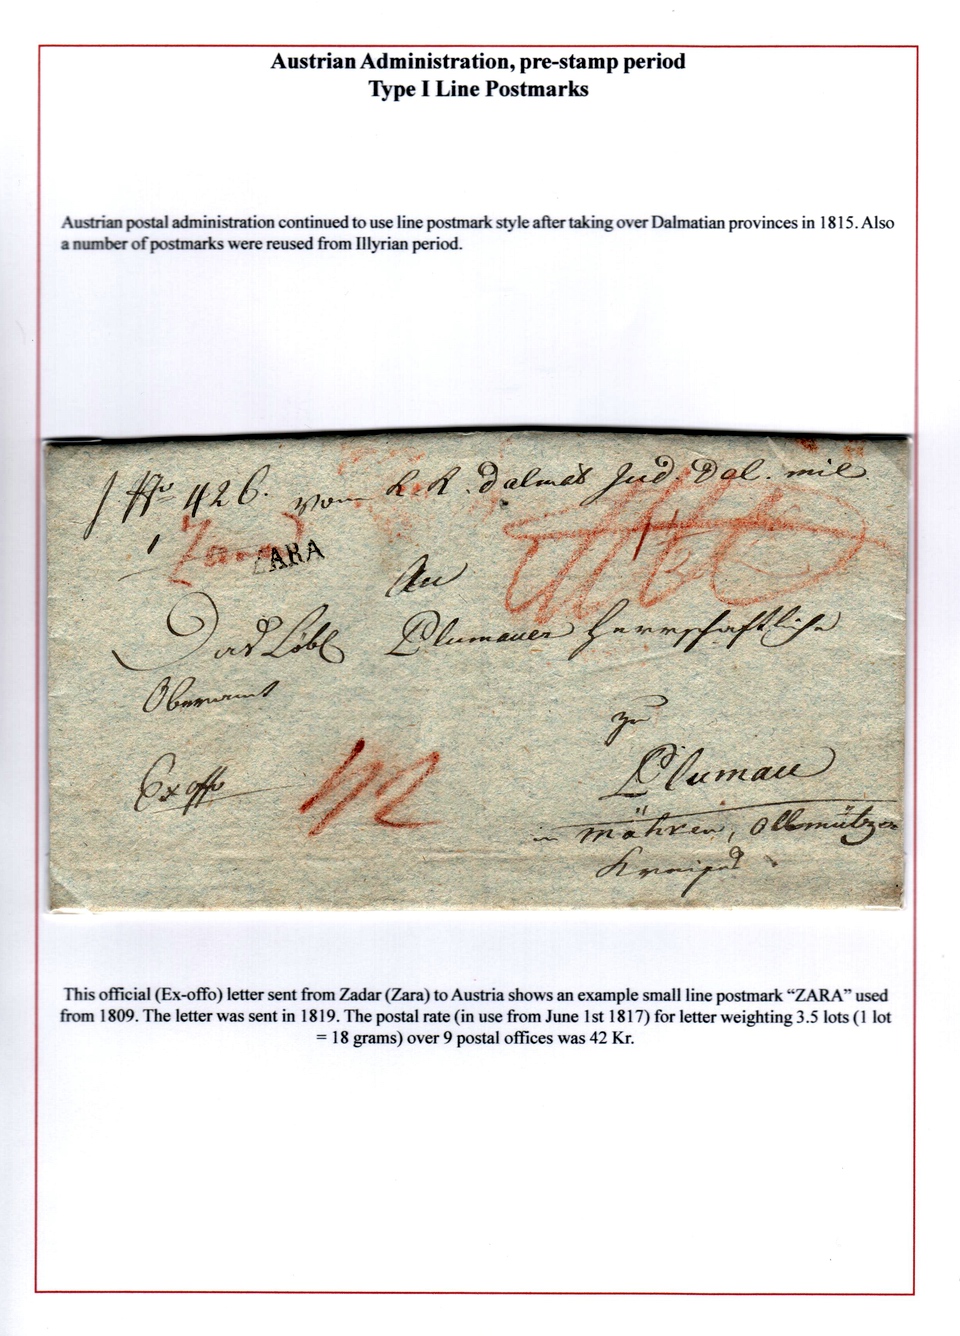 Austrian Administration, pre-stamp period
Type I Line Postmarks
Austrian postal administration continued to use line postmark style after taking over Dalmatian provinces in 1815. Also
a number of postmarks were reused from Illyrian period.
426. vom K. K. Dalmat Jud. Del. mil
Zara
ZARA
An
Das Löbl Plumauer Herrschaftliche
Oberamt
zu
Ex offo 42 Plumau
in Mähren, Ollmützer
Kreises
This official (Ex-offo) letter sent from Zadar (Zara) to Austria shows an example small line postmark “ZARA” used
from 1809. The letter was sent in 1819. The postal rate (in use from June 1st 1817) for letter weighting 3.5 lots (1 lot
= 18 grams) over 9 postal offices was 42 Kr.